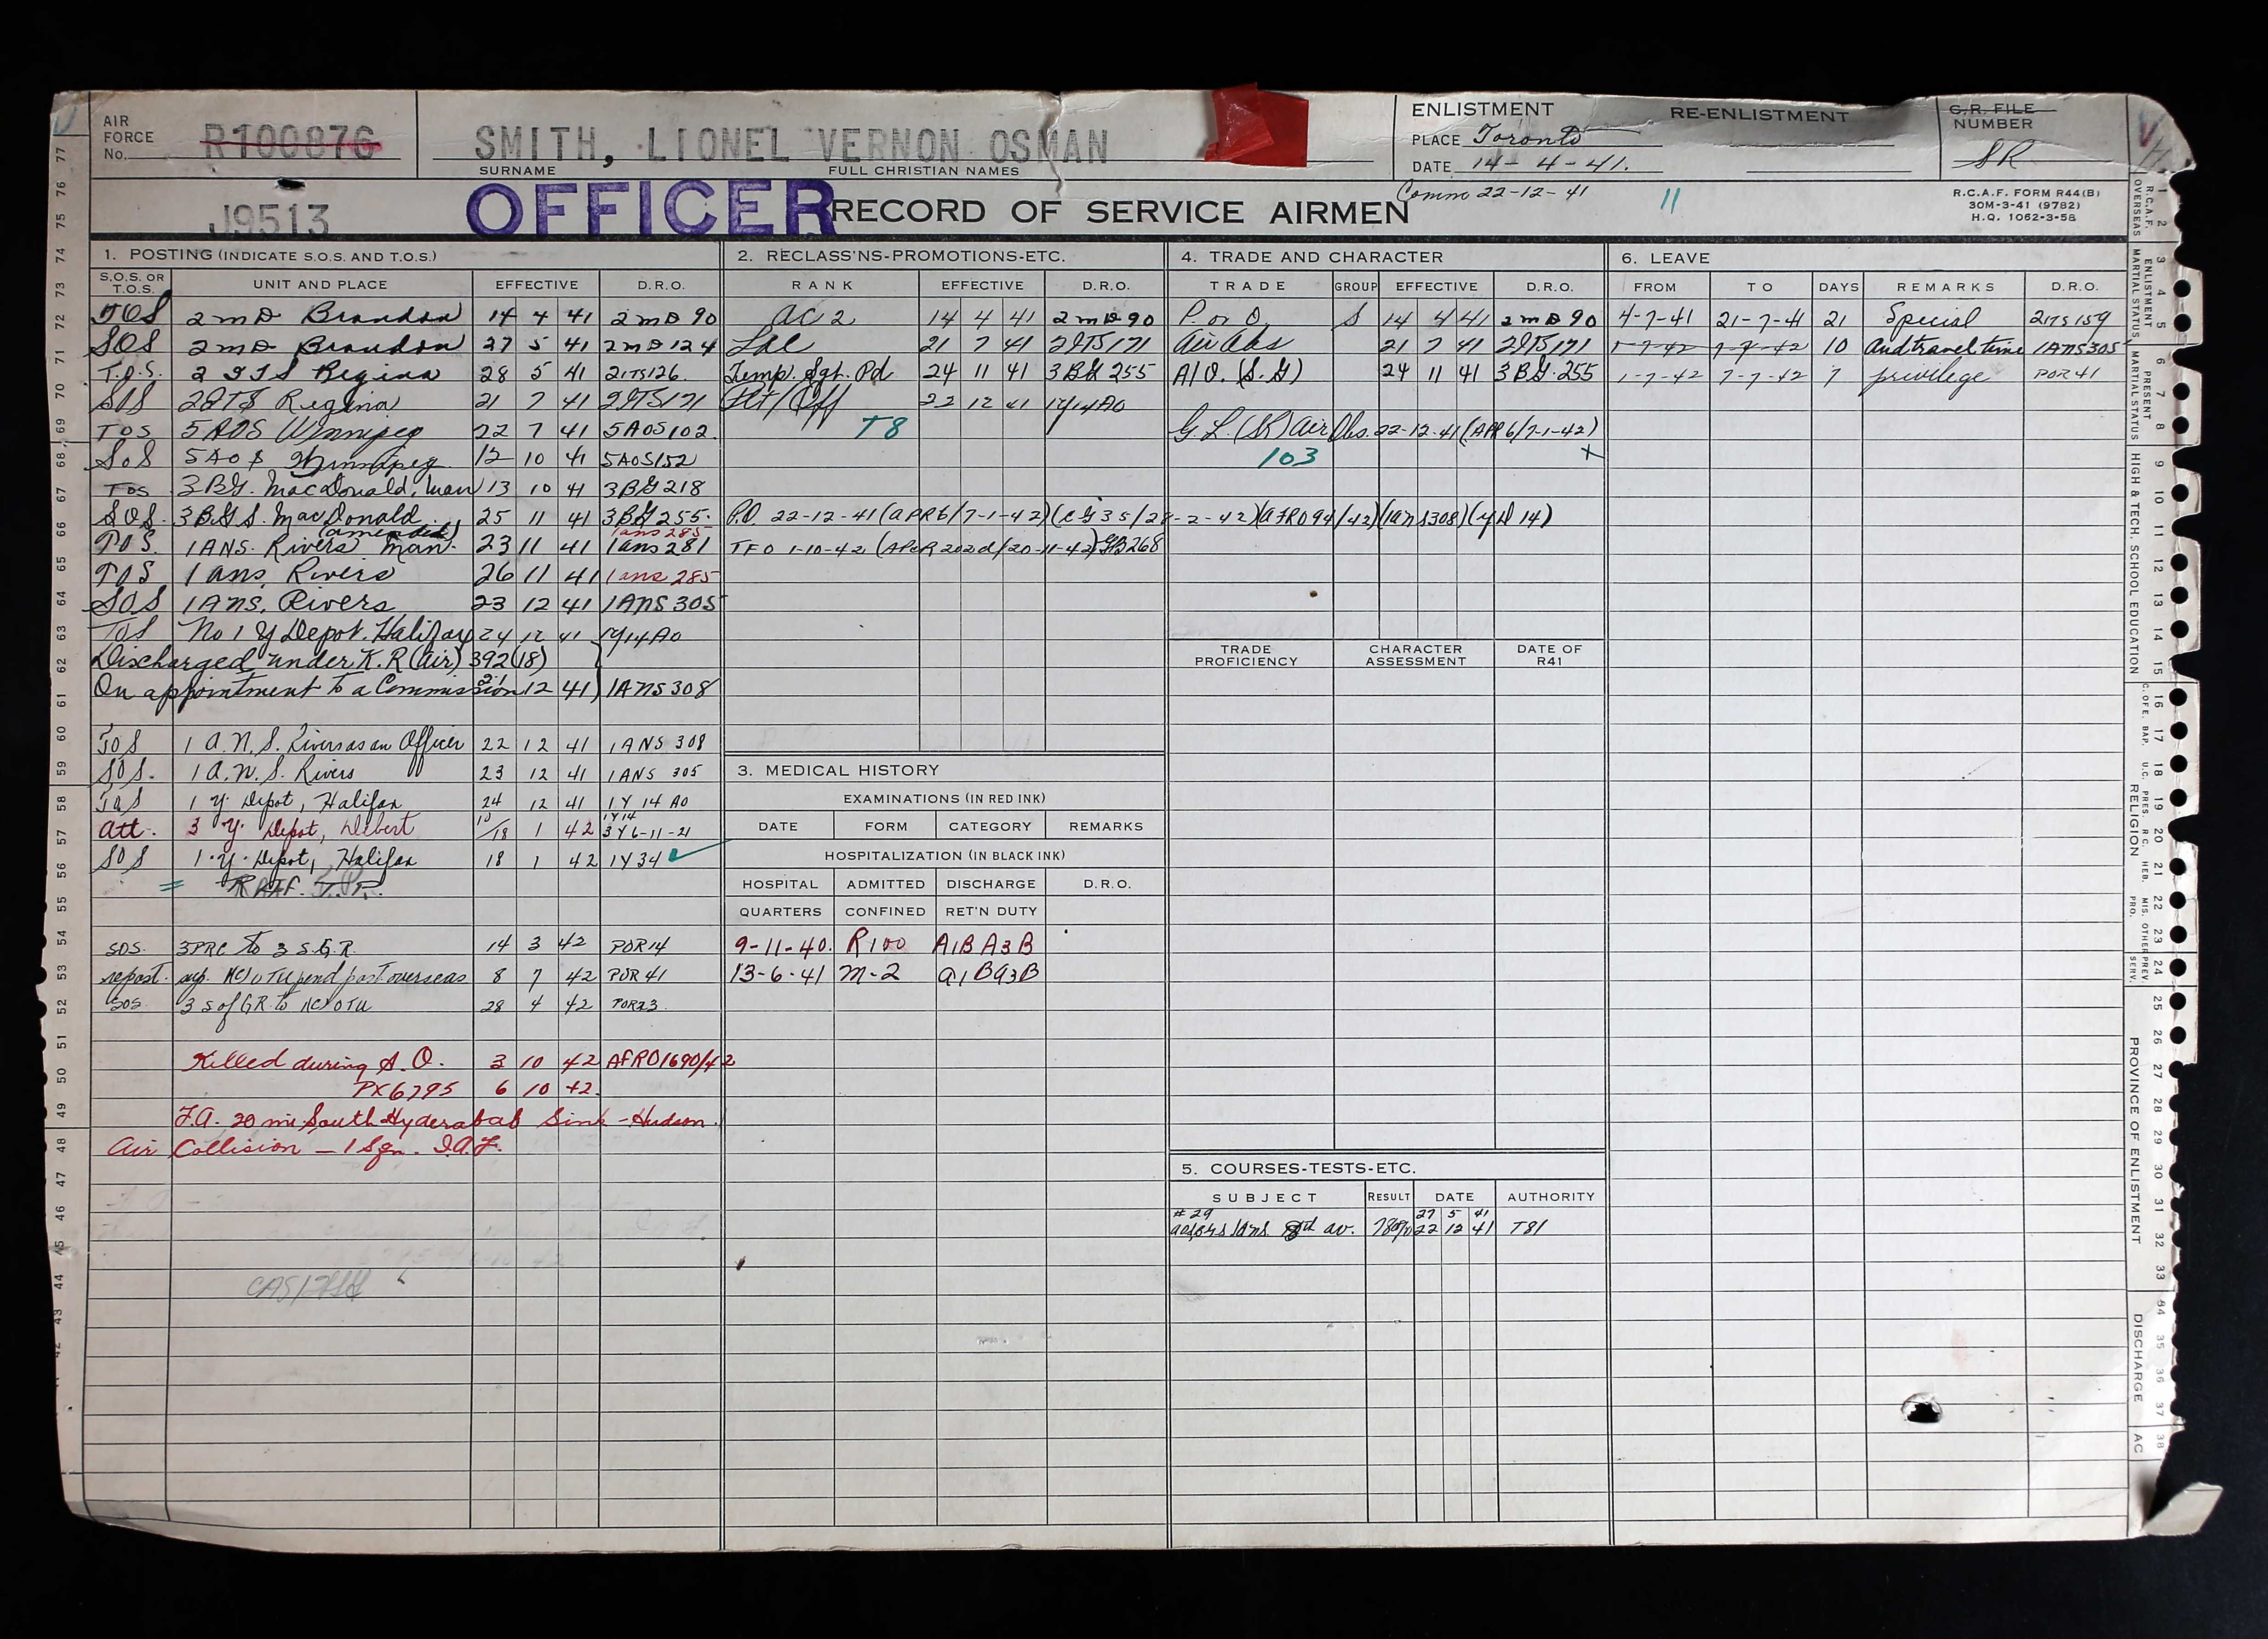 AIR FORCE No. R100876
SMITH, LIONEL VERNON OSMAN
SURNAME FULL CHRISTIAN NAMES
ENLISTMENT
PLACE Toronto
DATE 14-4-41.
RE-ENLISTMENT
G.R. FILE
NUMBER
SR
J9513
OFFICER
RECORD OF SERVICE AIRMEN
Comm 22-12-41
11
R.C.A.F. FORM R44(B)
30M-3-41 (9782)
H.Q. 1062-3-58
1. POSTING (INDICATE S.O.S. AND T.O.S.)
S.O.S. OR T.O.S. UNIT AND PLACE EFFECTIVE D.R.O.
TOS 2 m D Brandon 14 4 41 2 m D 90
SOS 2 m D Brandon 27 5 41 2 m D 124
T.O.S. 2 ITS Regina 28 5 41 2ITS126
SOS 2ITS Regina 21 7 41 2ITS171
TOS 5 AOS Winnipeg 22 7 41 5AOS102
SOS 5AOS Winnipeg 12 10 41 5AOS152
TOS 3BG. MacDonald, Man 13 10 41 3BG 218
SOS 3BGS. MacDonald 25 11 41 3BG 255
(amended) 1ans 285
TOS. 1ANS. Rivers Man. 23 11 41 1ans 281
TOS 1 ans, Rivers 26 11 41 1ans 285
SOS 1ANS, Rivers 23 12 41 1ANS 305
TOS No 1 Y Depot. Halifax 24 12 41 1Y14AO
Discharged under K.R (Air) 392(18)
On appointment to a Commission 21 12 41 1ANS 308
TOS 1 A.N.S. Rivers as an Officer 22 12 41 1ANS 308
SOS. 1 A.N.S. Rivers 23 12 41 1ANS 305
TOS 1 Y Depot, Halifax 24 12 41 1Y 14 AO
Att. 3 Y. Depot, Debert 1 42 1Y14 3Y6-11-21
SOS 1.Y. Depot, Halifax 18 1 42 1Y34
SOS. 3PRC to 3 S.G.R. 14 3 42 POR14
repost. 8 7 42 POR 41
SOS 3 S of GR to OTU 28 4 42 POR23.
Killed during A.O. 3 10 42 AFRO1690/42
PX6795 6 10 42.
F.A. 20 mi South Hyderabad Sink - Hudson.
Air Collision - 1 Sqn. I.A.F.
2. RECLASS'NS-PROMOTIONS-ETC.
RANK EFFECTIVE D.R.O.
AC 2 14 4 41 2 m D 90
Lac 21 7 41 2ITS171
Temp. Sgt. Pd 24 11 41 3BG 255
Flt/Off 22 12 41 1Y14AO
T8
P.O. 22-12-41 (APR6/7-1-42)(CG35/28-2-42)(AFRO94/42)(1ANS308)(YD 14)
TFO 1-10-42 (APCR 202d/20-11-42) 268
3. MEDICAL HISTORY
EXAMINATIONS (IN RED INK)
DATE FORM CATEGORY REMARKS
HOSPITALIZATION (IN BLACK INK)
HOSPITAL ADMITTED DISCHARGE D.R.O.
QUARTERS CONFINED RET'N DUTY
9-11-40. R100 A1B A3B
13-6-41 M-2 A1BA3B
4. TRADE AND CHARACTER
TRADE GROUP EFFECTIVE D.R.O.
P or O S 14 4 41 2 m D 90
Air Obs 21 7 41 2ITS171
A/O. (S.G) 24 11 41 3BG.255
G.L.(SR) Air Obs. 22-12-41 (APR 6/7-1-42)
103 X
TRADE PROFICIENCY CHARACTER ASSESSMENT DATE OF R41
5. COURSES-TESTS-ETC.
SUBJECT RESULT DATE AUTHORITY
#29 27 5 41
22 12 41 T81
6. LEAVE
FROM TO DAYS REMARKS D.R.O.
4-7-41 21-7-41 21 Special 2ITS 159
10 and travel time 1ANS305
1-7-42 7-7-42 7 privilege POR 41
R.C.A.F. OVERSEAS
ENLISTMENT MARTIAL STATUS
PRESENT MARTIAL STATUS
HIGH & TECH. SCHOOL EDUCATION
C. OF E. BAP. U.C. PRES. R.C. HEB. MIS. OTHER PRO.
RELIGION
PREV. SERV.
PROVINCE OF ENLISTMENT
DISCHARGE
AC